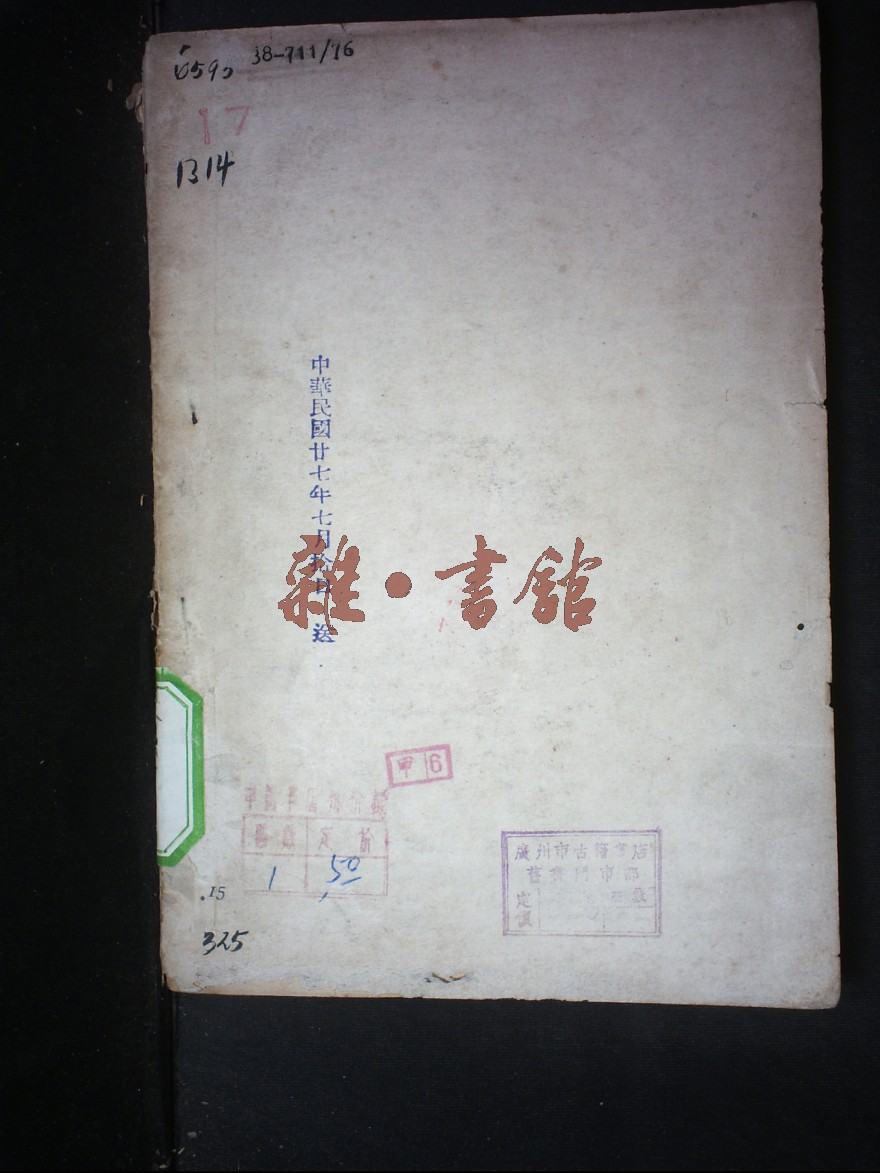 6595
38-711/76
17
B14
中華民國廿七年七月拾日 送
雜·書館
甲 6
定价
1 ,50
廣州市古籍書店
舊書門市部
定價
.15
325